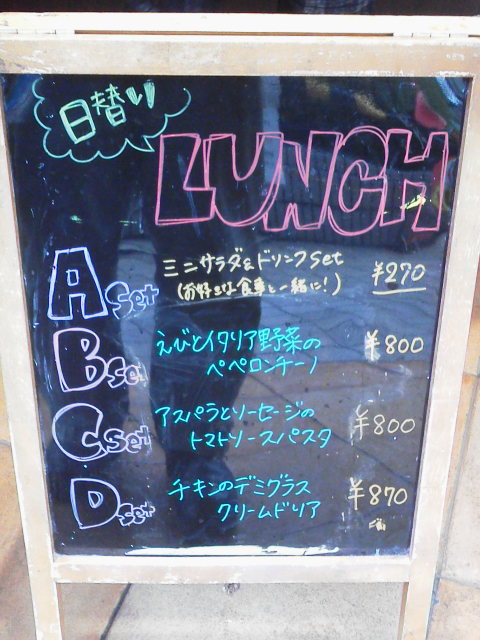 日替り
LUNCH
A set
ミニサラダ&ドリンクset
(お好きな食事と一緒に!)
¥270
B set
えびとイタリア野菜の
ペペロンチーノ
¥800
C set
アスパラとソーセージの
トマトソースパスタ
¥800
D set
チキンのデミグラス
クリームドリア
¥870